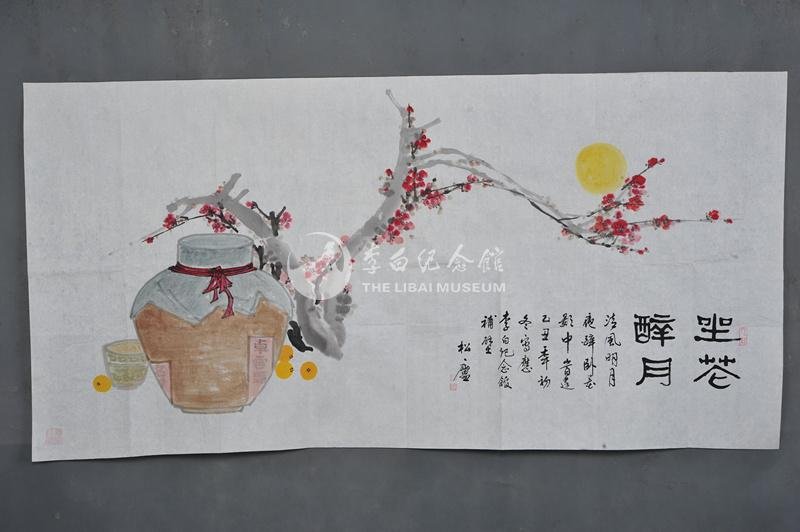 坐花
醉月
清風明月
夜醉卧花
影中
己丑年初
冬寫應
李白纪念館
補壁
松廬
李白纪念館
THE LIBAI MUSEUM